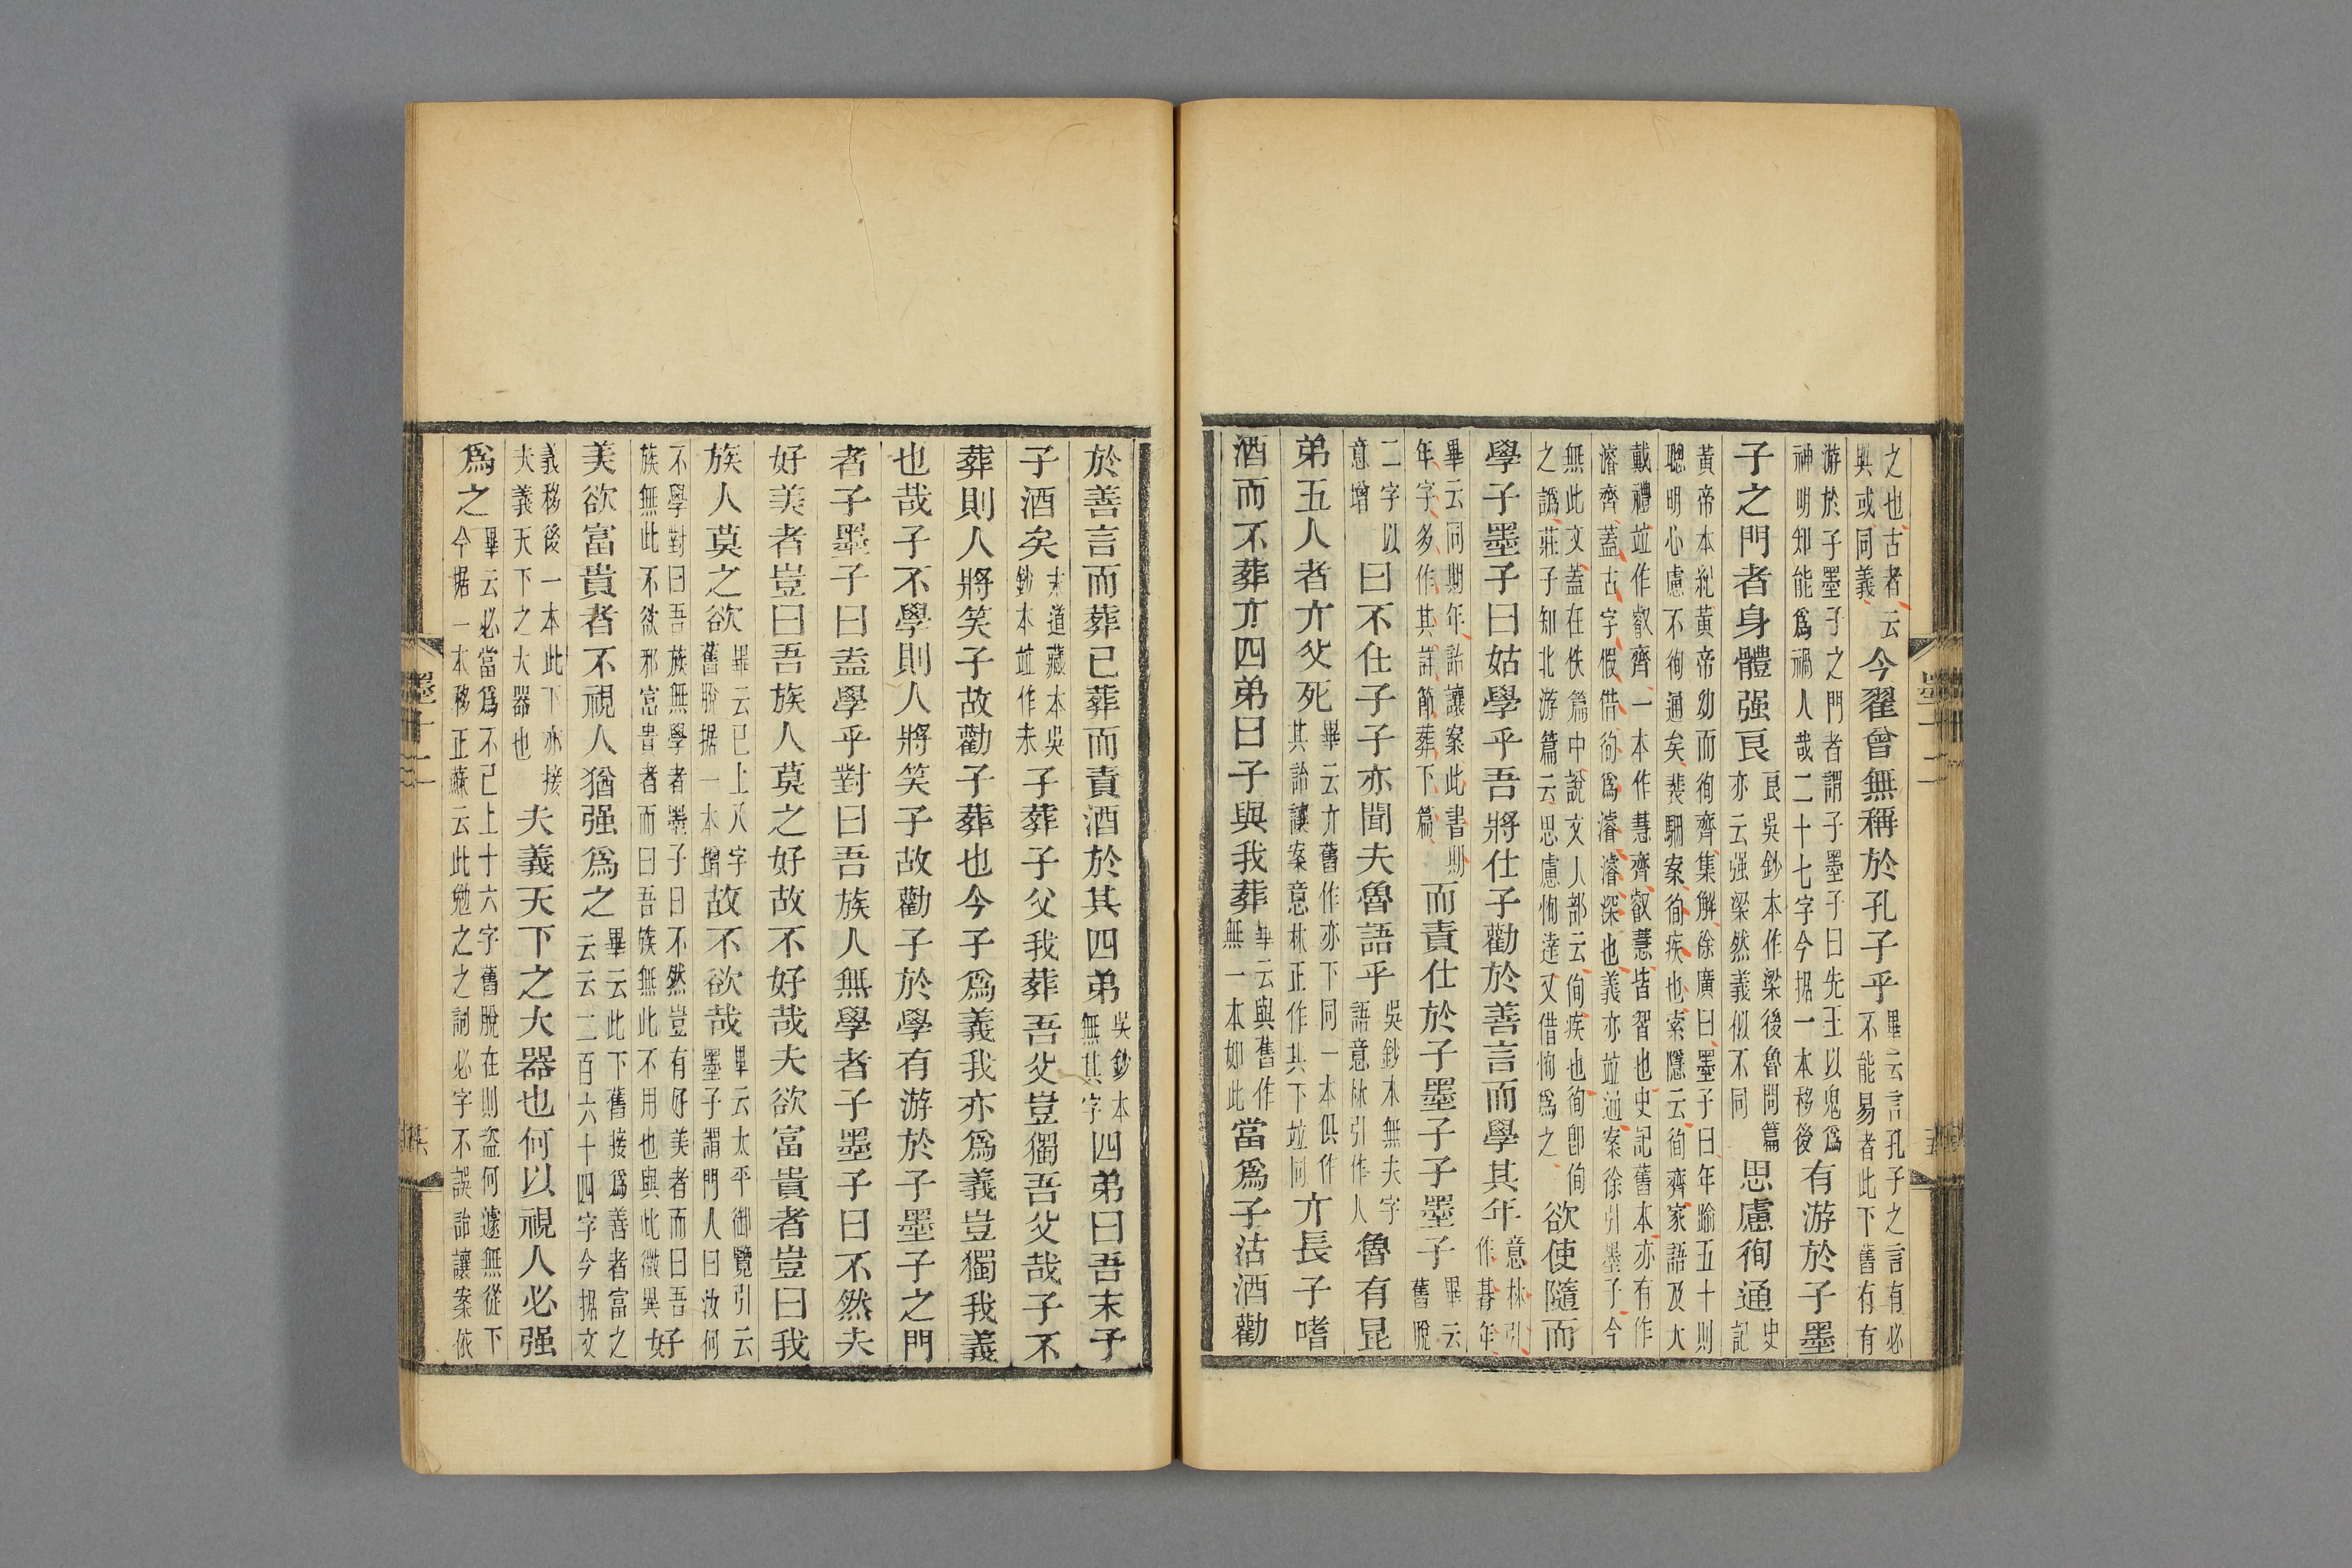 之也古者云
與或同義
今翟曾無稱於孔子乎
畢云言孔子之言有必
不能易者此下舊有有
游於子墨子之門者謂子墨子曰先王以鬼爲
神明知能爲禍人哉二十七字今据一本移後
有游於子墨
子之門者身體强良
良吳鈔本作梁後魯問篇
亦云强梁然義似不同
思慮徇通
史
記
黃帝本紀黃帝幼而徇齊集解徐廣曰墨子曰年踰五十則
聰明心慮不徇通矣裴駰案徇疾也索隱云徇齊家語及大
戴禮竝作叡齊一本作慧齊叡慧皆智也史記舊本亦有作
濬齊蓋古字假借徇爲濬濬深也義亦竝通案徐引墨子今
無此文蓋在佚篇中說文人部云侚疾也徇卽侚
之譌莊子知北游篇云思慮恂達又借恂爲之
欲使隨而
學子墨子曰姑學乎吾將仕子勸於善言而學其年
意林引
作朞年
畢云同期年詒讓案此書期
年字多作其詳節葬下篇
而責仕於子墨子子墨子
畢云
舊脫
二字以
意增
曰不仕子子亦聞夫魯語乎
吳鈔本無夫字
語意林引作人
魯有昆
弟五人者亓父死
畢云亓舊作亦下同一本俱作
其詒讓案意林正作其下竝同
亓長子嗜
酒而不葬亓四弟曰子與我葬
畢云與舊作
無一本如此
當爲子沽酒勸
於善言而葬已葬而責酒於其四弟
吳鈔本
無其字
四弟曰吾末予
子酒矣
末道藏本吳
鈔本竝作未
子葬子父我葬吾父豈獨吾父哉子不
葬則人將笑子故勸子葬也今子爲義我亦爲義豈獨我義
也哉子不學則人將笑子故勸子於學有游於子墨子之門
者子墨子曰盍學乎對曰吾族人無學者子墨子曰不然夫
好美者豈曰吾族人莫之好故不好哉夫欲富貴者豈曰我
族人莫之欲
畢云已上八字
舊脫据一本增
故不欲哉
畢云太平御覽引云
墨子謂門人曰汝何
不學對曰吾族無學者墨子曰不然豈有好美者而曰吾
族無此不欲邪富貴者而曰吾族無此不用也與此微異
好
美欲富貴者不視人猶强爲之
畢云此下舊接爲善者富之
云云二百六十四字今据文
義移後一本此下亦接
夫義天下之大器也
夫義天下之大器也何以視人必强
爲之
畢云必當爲不已上十六字舊脫在則盜何遽無從下
今据一本移正蘇云此勉之之詞必字不誤詒讓案依
墨十二
墨十二